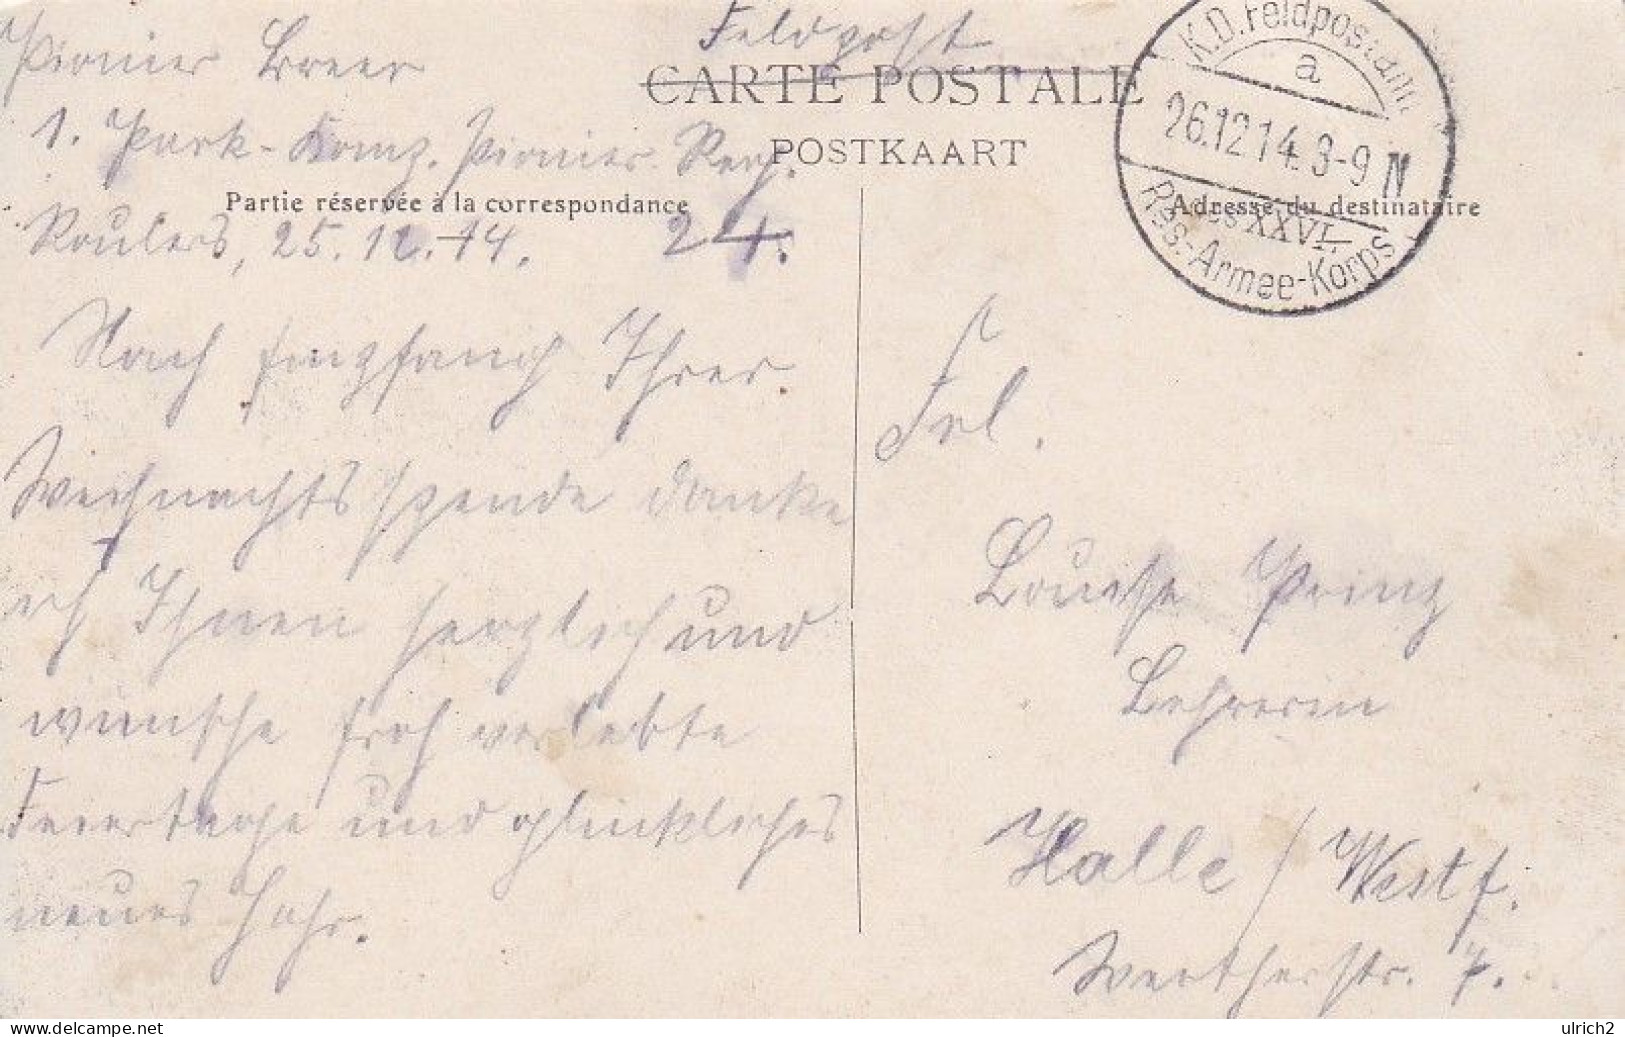 Pionier Breer
Feldpost
1. Park-Komp. Pionier Reg.
CARTE POSTALE
POSTKAART
Partie réservée à la correspondance
Adresse du destinataire
Roulers, 25.12.14. 24.
K.D. Feldpostamt
a
26.12 14. 3-9 N
des XXVI.
Res.-Armee-Korps
Nach Empfang Ihrer
Weihnachtsspende danke
ich Ihnen herzlich und
wünsche froh verlebte
Feiertage und glückliches
neues Jahr.
Frl.
Louise Prinz
Lehrerin
Halle / Westf.
Wertherstr. 7.
ulrich2